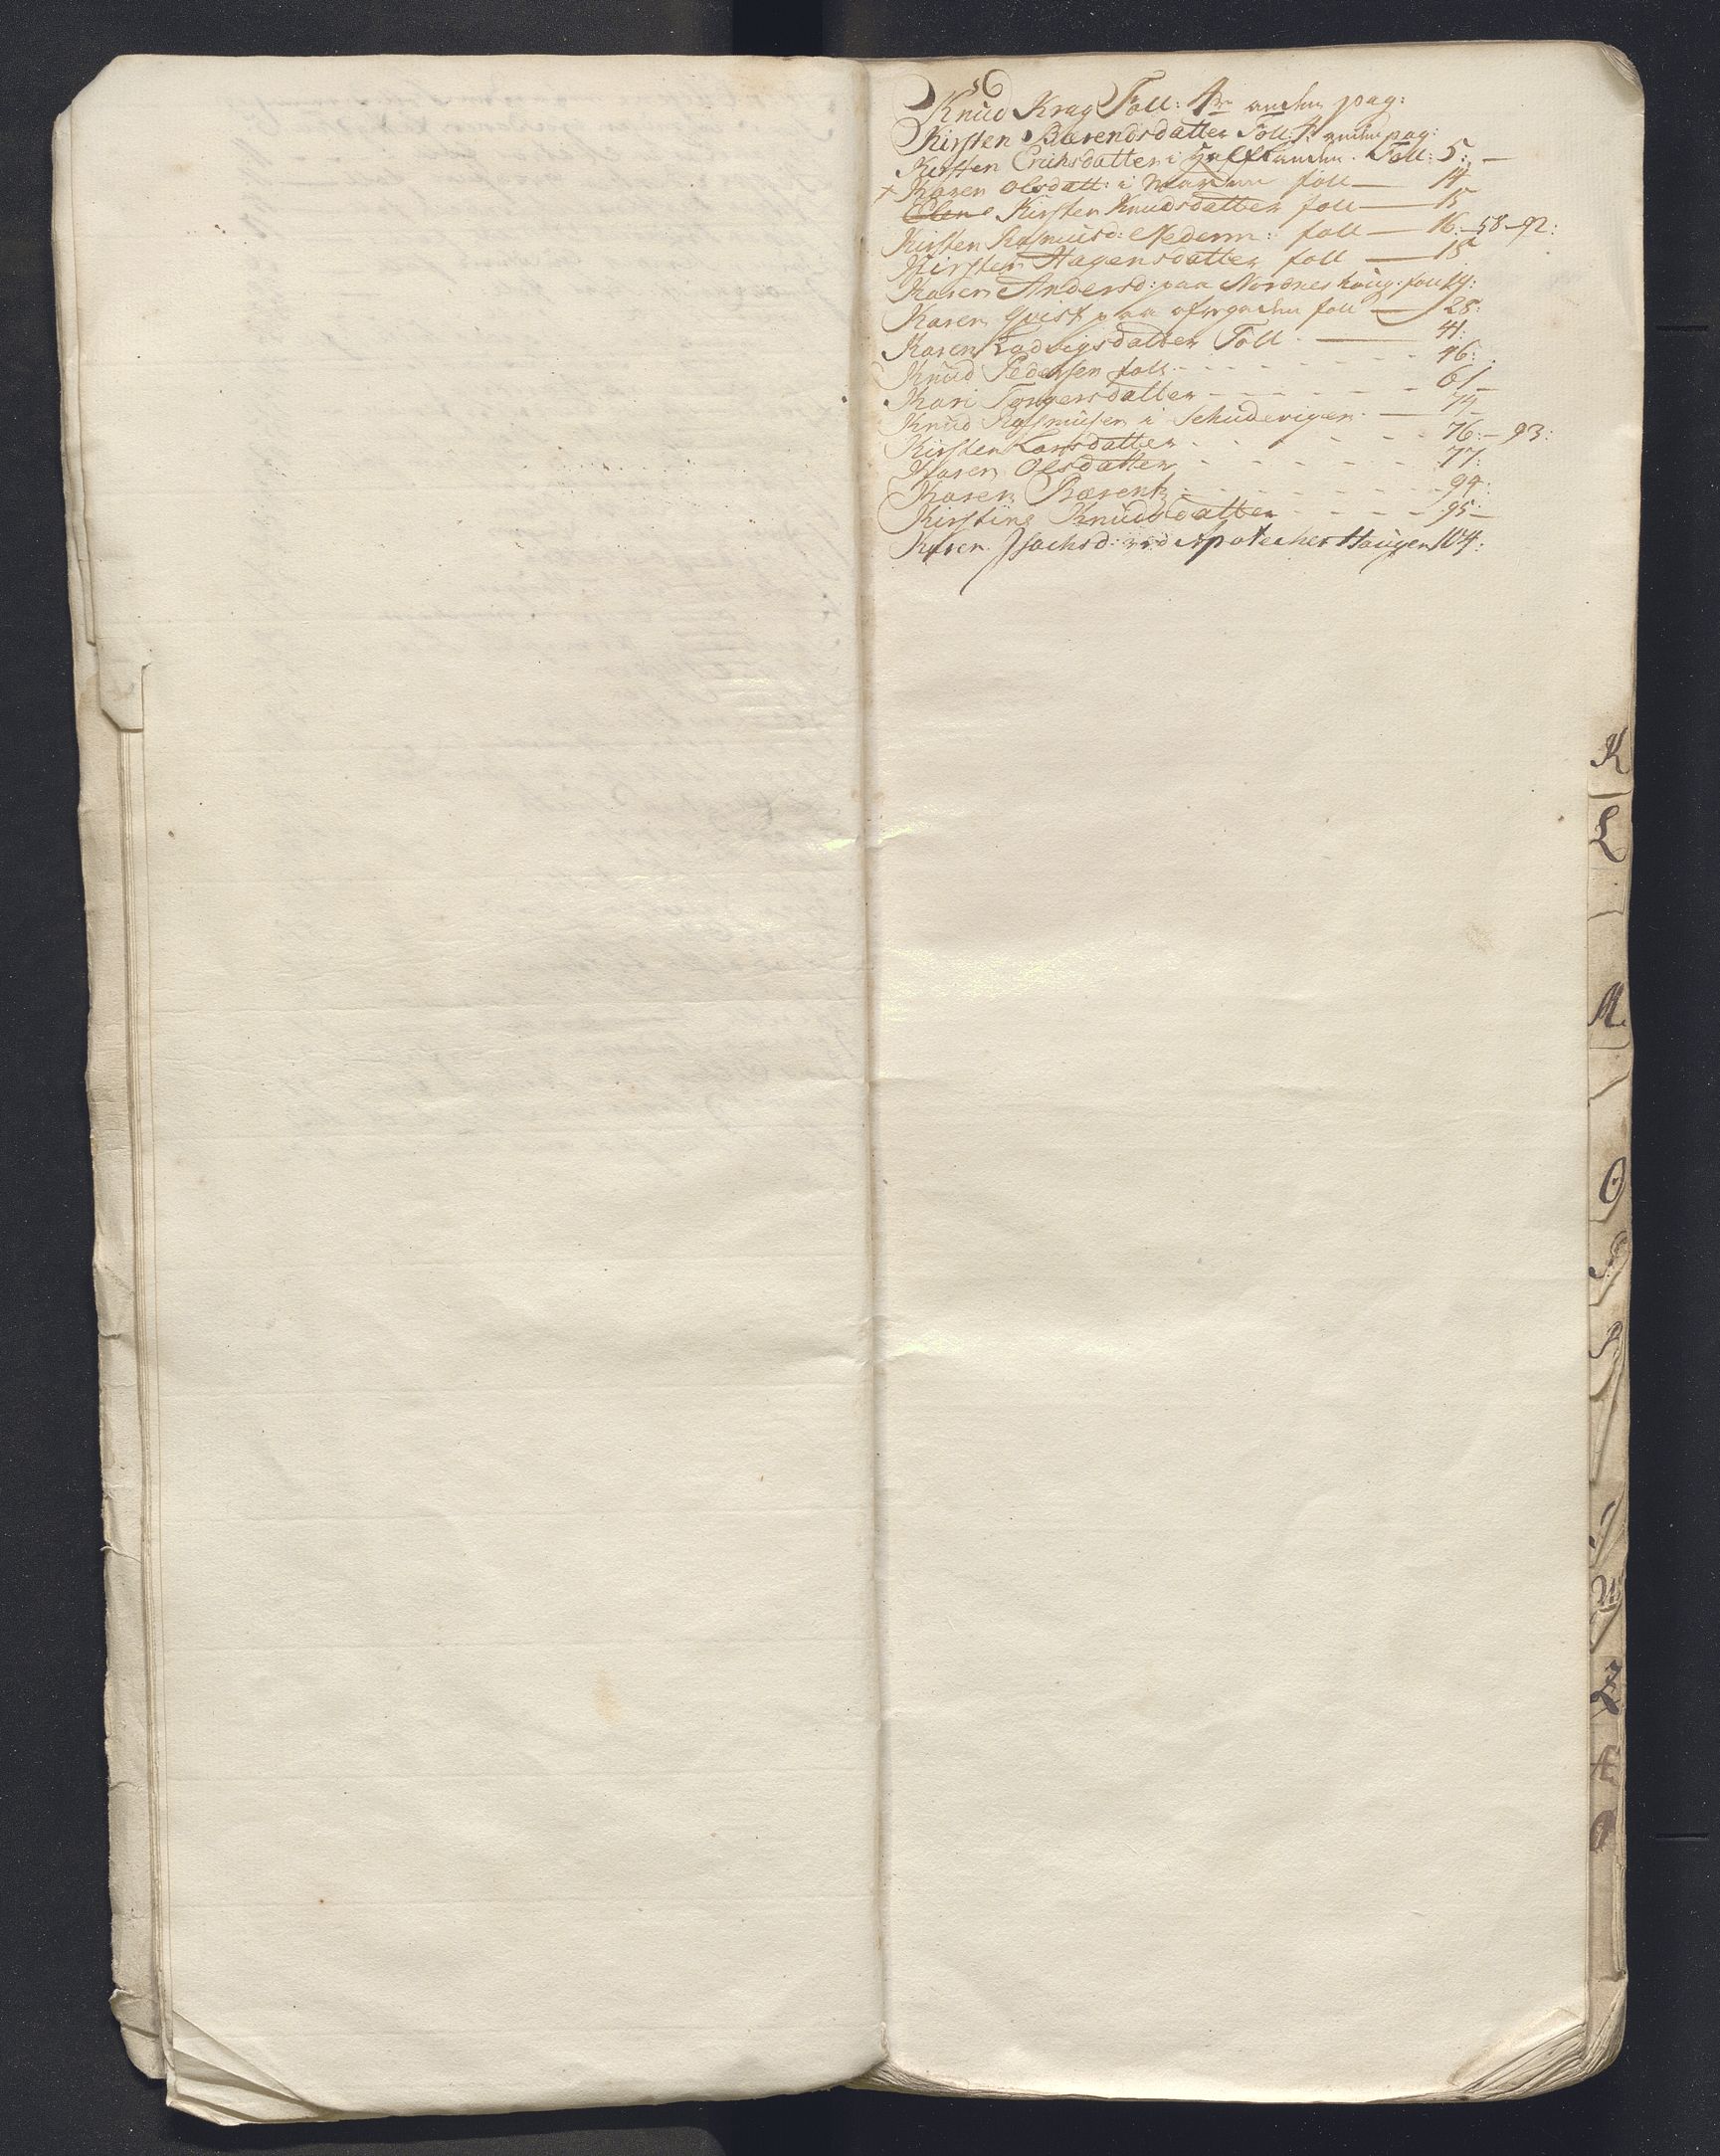 Knud Krag Foll: 4 anden pag:
Kirsten Barendsdatter Foll: 4 anden pag:
Kirsten Erichsdatter i Foll: 5: —
+ Karen Olsdatt: i Marken foll — 14
Elen Kirsten Knudsdatter foll — 15
Kirsten Rasmusd: Nederm: foll — 16:—58—92:
Kirsten Hagensdatter foll — 15
Karen Andersd: paa Nordnes houg: foll 19:
Karen Qvist paa foll — 28:
Karen Ludvigsdatter Foll — 41:
Knud Pedersen foll - - - - - - 46:
Kari Torgersdatter - - - - - 61 —
Knud Rasmusen i Schudevigen. — 74 —
Kirsten Larsdatter - - - - - 76:— 93:
Karen Olsdatter - - - - - 77:
Karen Barentz: - - - - - 94:
Kirstine Knudsdatter - - - - 95 —
Karen Isachsd: ved Apotecher Haugen 104:
K
L
M.
O
P
R
W
Z
Æ
Ø